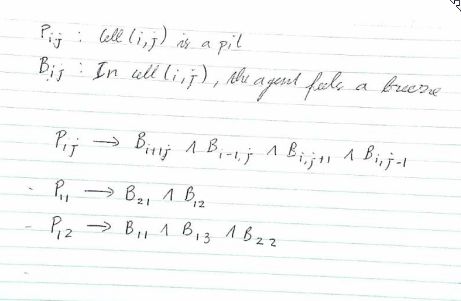 Pij : Cell (i,j) is a pit
Bij : In cell (i,j), the agent feels a breeze
Pij → Bi+1j ∧ Bi-1,j ∧ Bi,j+1 ∧ Bi,j-1
- P11 → B21 ∧ B12
- P12 → B11 ∧ B13 ∧ B22